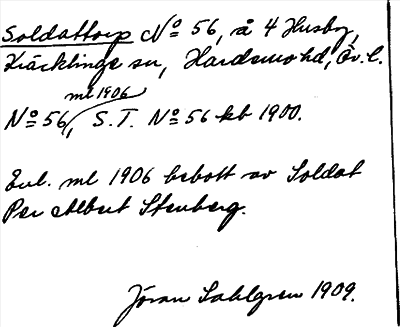 Soldattorp No 56, å 4 Husby,
Kräcklinge sn, Hardemo hd, Ör. l.
ml 1906
No 56, S.T. No 56 kb 1900.
Enl. ml 1906 bebott av Soldat
Per Albert Stenberg.
Jöran Sahlgren 1909.